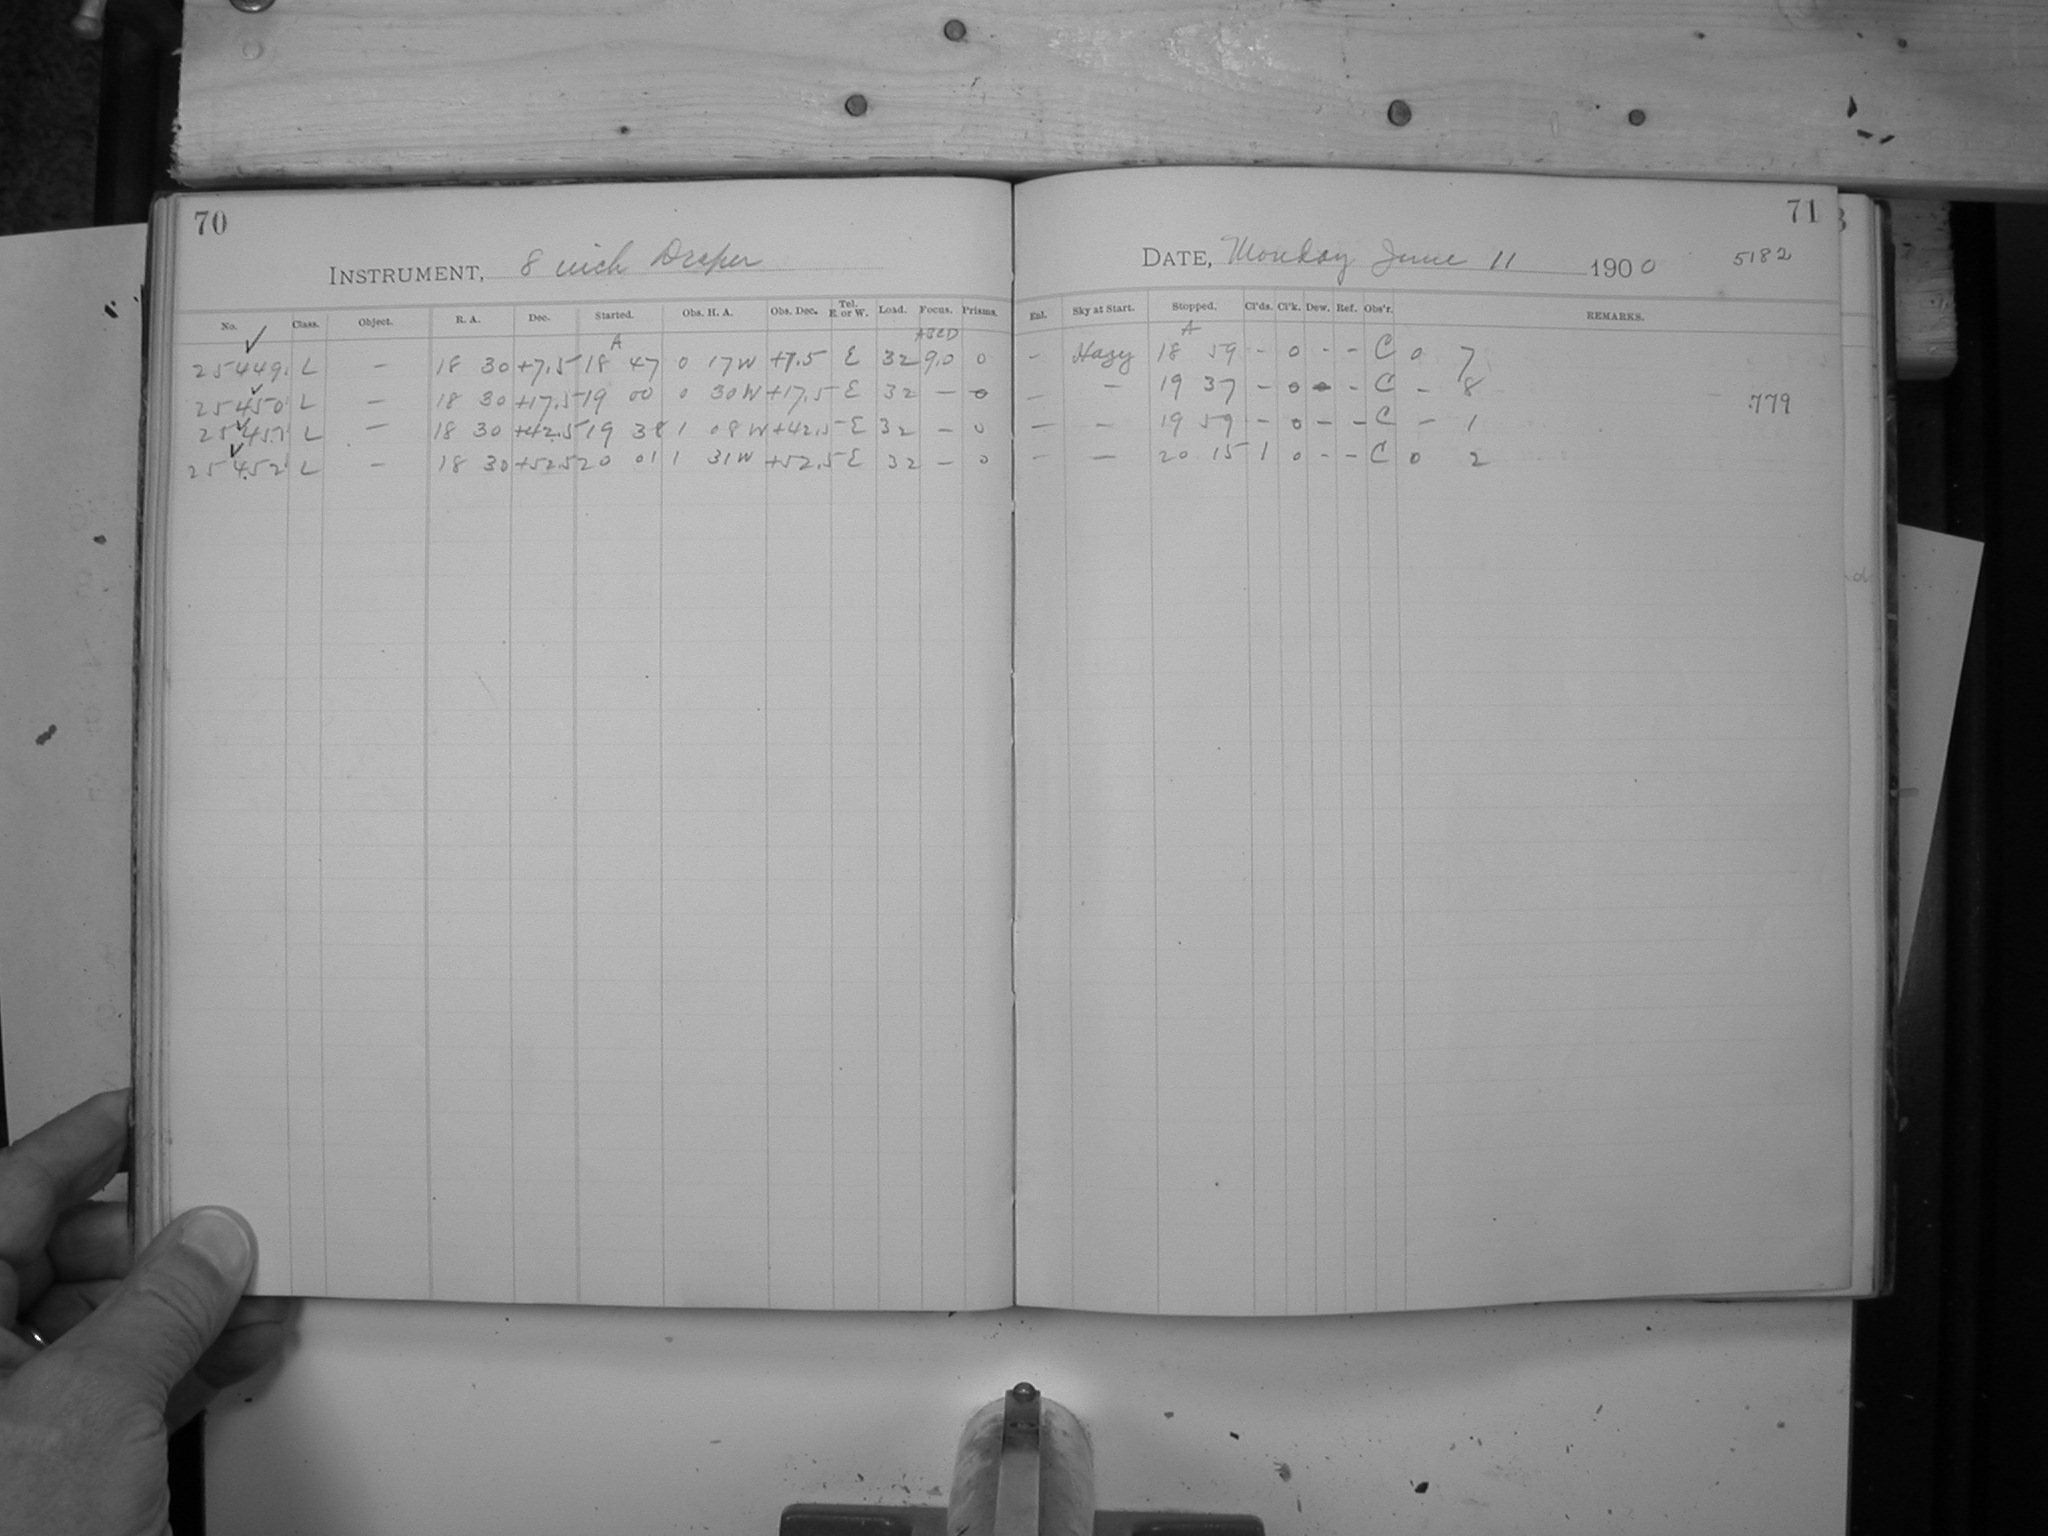 70
INSTRUMENT, 8 inch Draper
No. Class. Object. R. A. Dec. Started. Obs. H. A. Obs. Dec. Tel. E. or W. Load. Focus. Prisms.
A ABCD
25449 L — 18 30 +7.5 18 47 0 17W +7.5 E 32 9.0 0
25450 L — 18 30 +17.5 19 00 0 30W +17.5 E 32 — 0
25451 L — 18 30 +42.5 19 38 1 08W +42.5 E 32 — 0
25452 L — 18 30 +52.5 20 01 1 31W +52.5 E 32 — 0
71
DATE, Monday June 11 1900 5182
Enl. Sky at Start. Stopped. Cl'ds. Cl'k. Dew. Ref. Obs'r. REMARKS.
A
— Hazy 18 59 - 0 - - C 0 7
— — 19 37 - 0 - - C - 8
779
— — 19 59 - 0 - - C - 1
— — 20 15 1 0 - - C 0 2